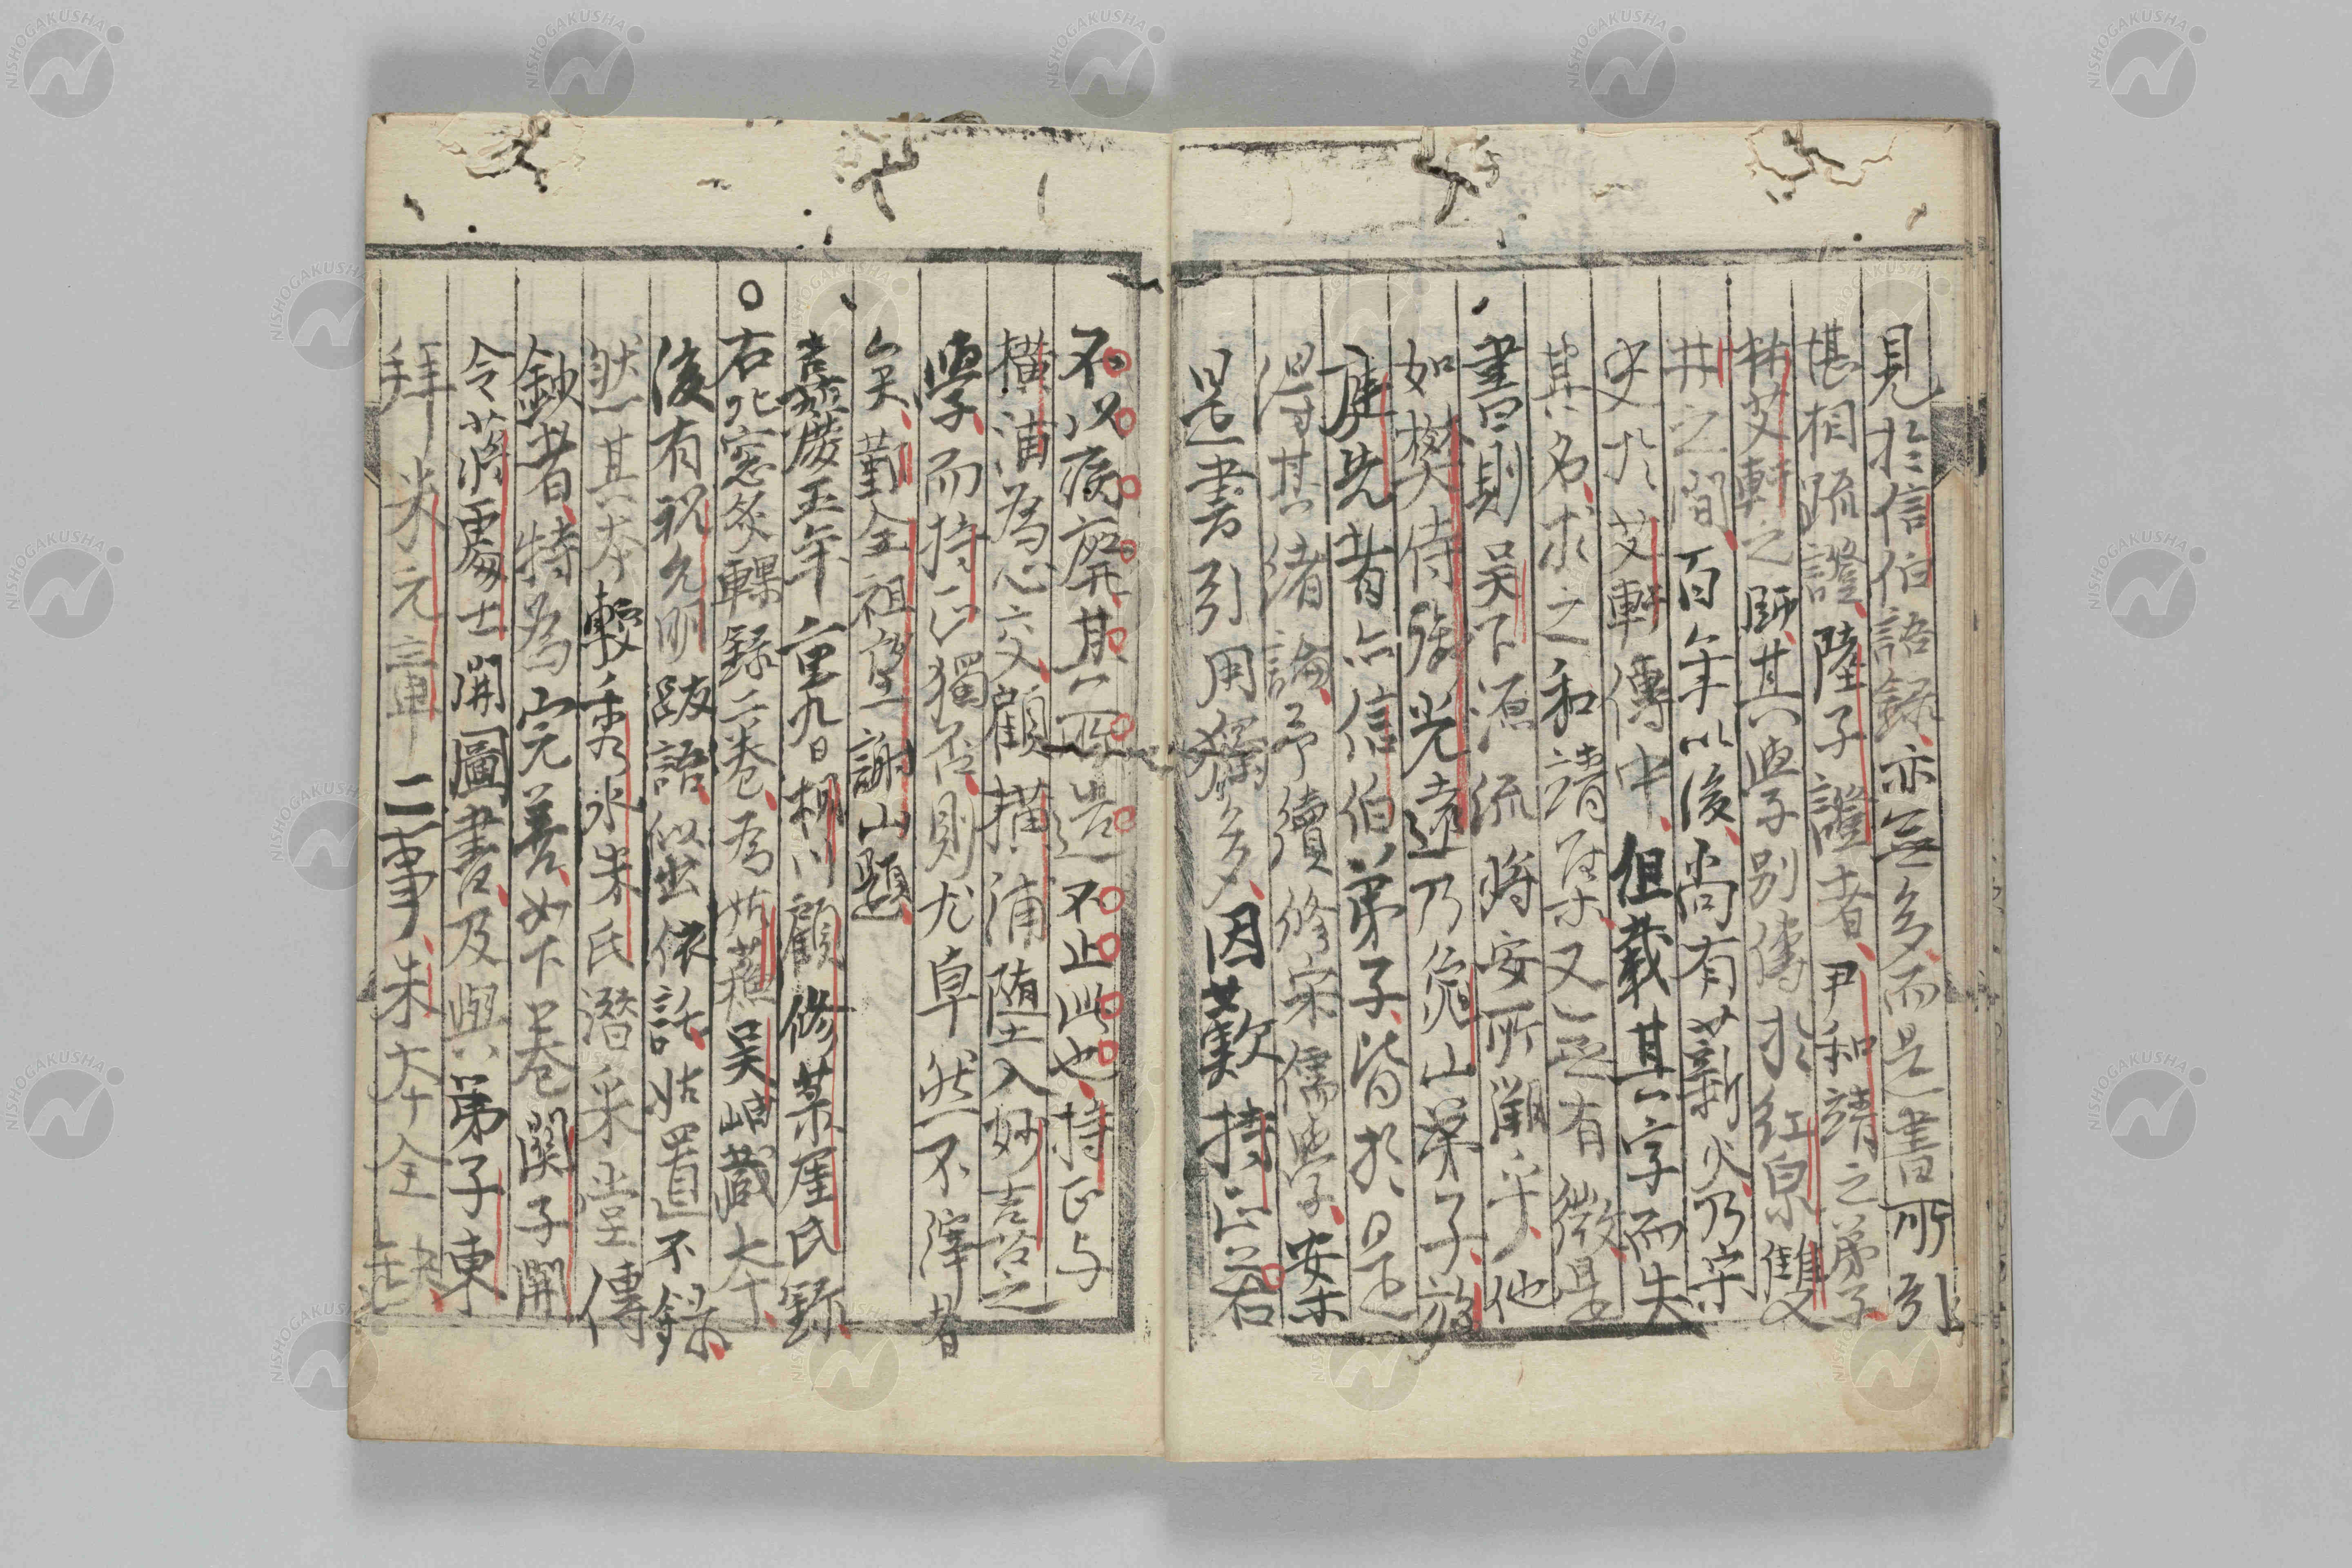 見於信伯語錄亦無多而是書所引
甚相疏證陸子證者尹和靖之弟子
林艾軒之師其學別傳於紅泉雙
井之間百年以後尚有薪火乃宋
史於艾軒傳中但載其字而失
其名求之和靖集又無有微是
書則吳下源流將安所溯乎他
如樊侍御光遠乃龜山弟子
庭先昔亦信伯弟子皆於是
得其緒論予續修宋儒學案
是書引用獨多因歎持正若
不以病廢其所造不止此也持正与
橫浦為心交顧橫浦墮入妙喜之
學而持正獨否則尤卓然不滓者
矣 董全祖望謝山題
嘉慶五年重九日桐川顧修菉厓氏錄
右北窓炙輠錄二卷為姑蘇吳岫藏本
後有祝允明跋語似出依託姑置不錄
然其本較秀水朱氏潛采堂傳
鈔者特為完善如下卷關子開
令蔣處士開圖書及與弟子東
拜米元章二事朱本全缺